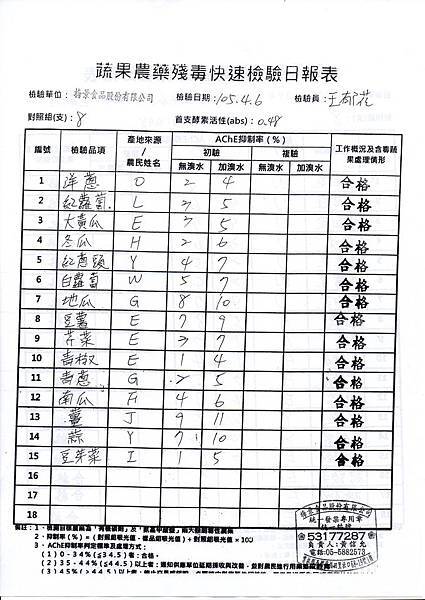 蔬果農藥殘毒快速檢驗日報表
檢驗單位：裕景食品股份有限公司 檢驗日期：105.4.6 檢驗員：王郁花
對照組(支)：8 首支酵素活性(abs)：0.48
編號 檢驗品項 產地來源/農民姓名 AChE抑制率(%) 工作概況及含毒蔬果處理情形
初驗 複驗
無溴水 加溴水 無溴水 加溴水
1 洋蔥 O 2 4 合格
2 紅蘿蔔 L 3 5 合格
3 大黃瓜 E 3 5 合格
4 冬瓜 H 2 6 合格
5 紅蔥頭 Y 4 7 合格
6 白蘿蔔 W 5 7 合格
7 地瓜 G 8 10 合格
8 豆薯 E 7 9 合格
9 芹菜 E 3 7 合格
10 青椒 E 1 4 合格
11 青蔥 G 2 5 合格
12 南瓜 H 4 6 合格
13 薑 J 9 11 合格
14 蒜 Y 7 10 合格
15 豆芽菜 I 1 5 合格
16
17
18
備註：1、檢測目標農藥為「有機磷劑」及「氨基甲酸鹽」兩大類劇毒性農藥
2、抑制率(%)＝(對照組吸光值－樣品組吸光值)÷對照組吸光值×100
3、AChE抑制率判定標準及處理方式：
(1)0-34%(≦34.5)者：合格。
(2)35-44%(≦44.5)以上者：
(3)45%(≧44.5)以上者
股份有限公司
統一發票專用章
統一編號
53177287
負責人：黃信允
電話:05-5882573